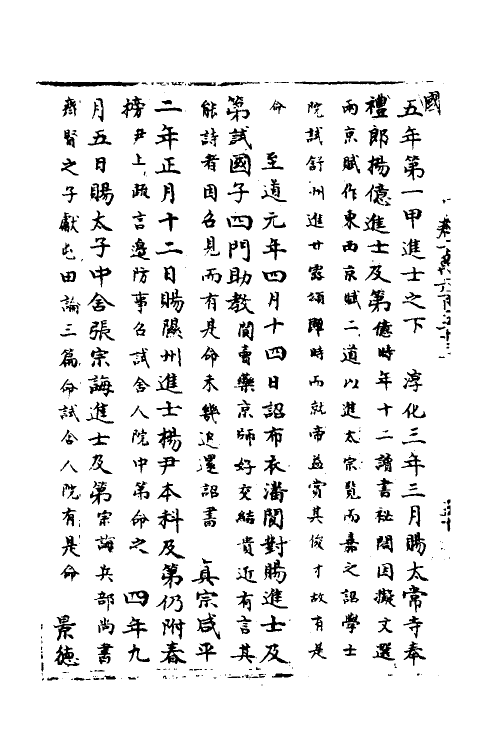 國
五年第一甲進士之下　淳化三年三月賜太常寺奉
禮郎楊億進士及第億時年十二讀書祕閣因擬文選
兩京賦作東西京賦二道以進太宗覽而嘉之詔學士
院試舒州進甘露頌踰時而就帝益賞其俊才故有是
命　至道元年四月十四日詔布衣潘閬對賜進士及
第試國子四門助教閬賣藥京師好交結貴近有言其
能詩者因召見而有是命未幾追還詔書　真宗咸平
二年正月十二日賜隰州進士楊尹本科及第仍附春
榜尹上疏言邊防事召試舍人院中第命之　四年九
月五日賜太子中舍張宗誨進士及第宗誨兵部尚書
齊賢之子獻屯田論三篇命試舍人院有是命　景德